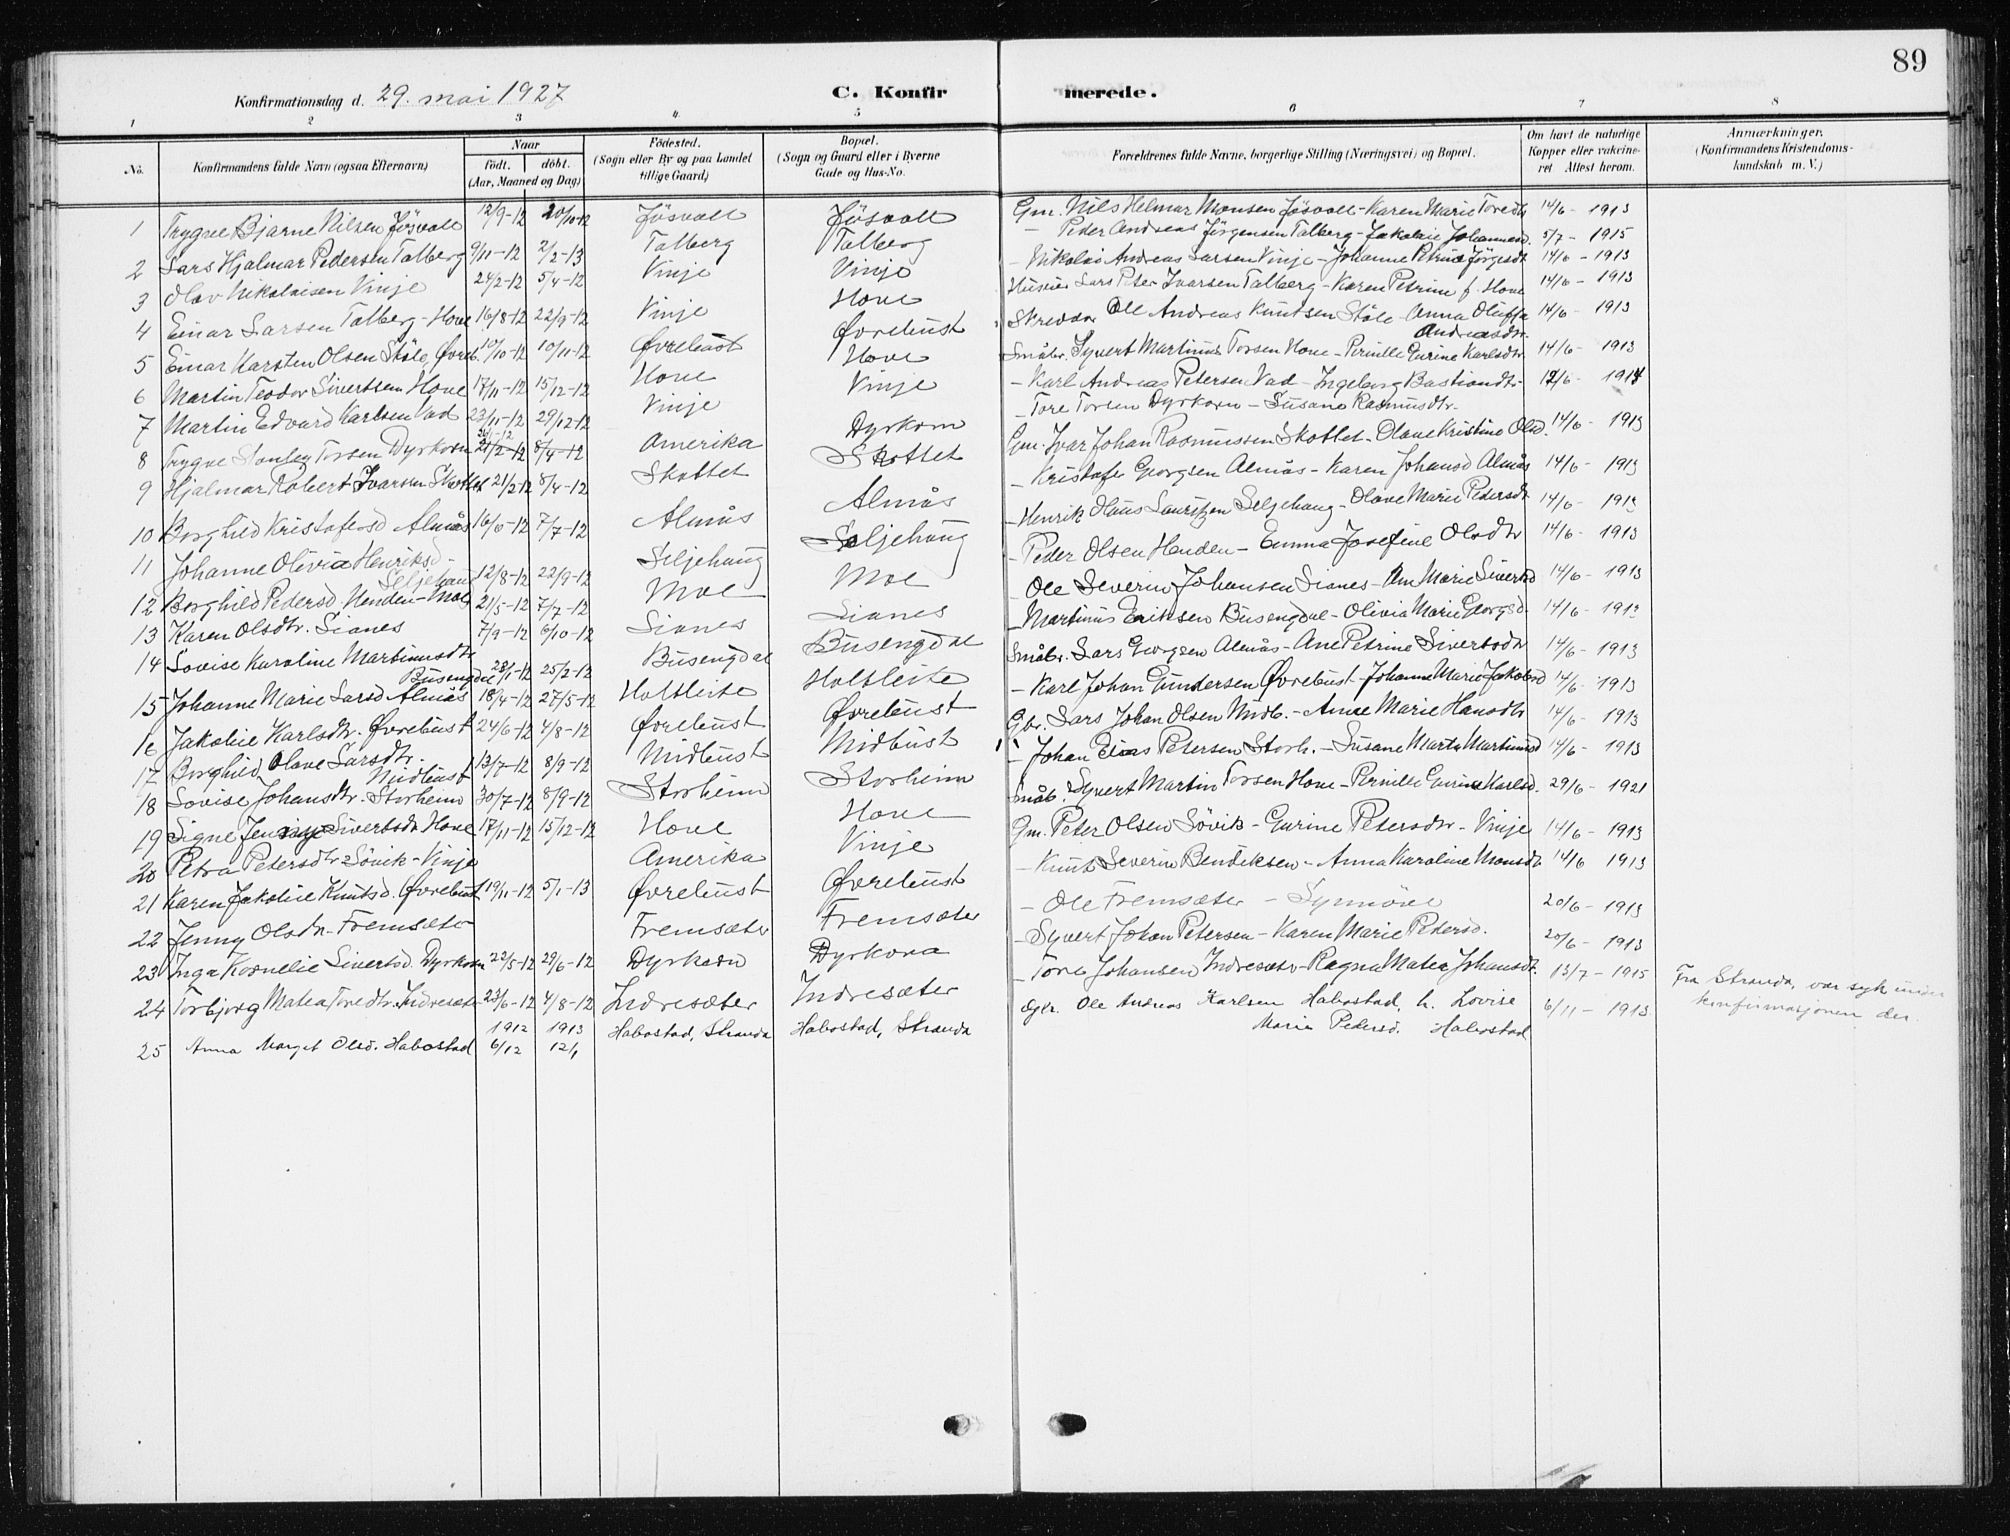 89
Konfirmationsdag d. 29. mai 1927
C. Konfirmerede.
1 2 3 4 5 6 7 8
No. Konfirmandens fulde Navn (ogsaa Efternavn) Naar født. døbt. (Aar, Maaned og Dag) Fødested. (Sogn eller By og paa Landet tillige Gaard) Bopæl. (Sogn og Gaard eller i Byerne Gade og Hus-No. Forældrenes fulde Navne, borgerlige Stilling (Næringsvei) og Bopæl. Om havt de naturlige Kopper eller vakcineret Attest herom. Anmærkninger. (Konfirmandens Kristendomskundskab m. V.)
1 Trygve Bjarne Nilsen Jøsvoll 12/9-12 20/10-12 Jøsvoll Jøsvoll Gm. Nils Helmar Monsen Jøsvoll - Karen Marie Toredtr 14/6 - 1913
2 Lars Hjalmar Pedersen Talberg 9/11-12 2/2-13 Talberg Talberg - Peder Andreas Jørgensen Talberg - Jakobie Johannesd. 5/7 - 1915
3 Olav Nikolaisen Vinje 24/2-12 5/4-12 Vinje Vinje - Nikolai Andreas Larsen Vinje - Johanne Petrine Jørgsdtr 14/6 - 1913
4 Einar Larsen Talberg - Hove 16/8-12 22/9-12 Vinje Hove Husm. Lars Peter Ivarsen Talberg - Karen Petrine f. Hove 14/6 - 1913
5 Einar Karsten Olsen Støle, Øvreb. 10/10-12 10/11-12 Øvrebust Øvrebust Skredder Ole Andreas Knutsen Støle - Anna Oluffa Andreasdtr. 14/6 - 1913
6 Martin Teodor Sivertsen Hove 17/11-12 15/12-12 Hove Hove Småbr. Syvert Martinus Torsen Hove - Pernille Gurine Karlsdtr 14/6 - 1913
7 Martin Edvard Karlsen Vad 23/11-12 29/12-12 Vinje Vinje - Karl Andreas Petersen Vad - Ingeborg Bastiandtr. 12/6 - 1914
8 Trygve Stanley Torsen Dyrkorn 21/2-12 8/4-12 Amerika Dyrkorn - Tore Torsen Dyrkorn - Susane Rasmusdtr.
9 Hjalmar Robert Ivarsen Skottet 21/2-12 8/4-12 Skottet Skottet Gm. Ivar Johan Rasmussen Skottet - Olave Kristine Olsd. 14/6 - 1913
10 Borghild Kristofersd Almås 16/6-12 7/7-12 Almås Almås - Kristofer Georgsen Almås - Karen Johansd Almås 14/6 - 1913
11 Johanne Olivia Henriksd - Seljehaug 12/8-12 22/9-12 Seljehaug Seljehaug - Henrik Olaus Lauritzen Seljehaug - Olave Marie Pedersdtr 14/6 - 1913
12 Borghild Pedersd. Henden - Moe 21/5-12 7/7-12 Moe Moe - Peder Olsen Henden - Emma Josefine Olsdtr 14/6 - 1913
13 Karen Olsdtr. Sianes 7/9-12 6/10-12 Sianes Sianes - Ole Severin Johansen Sianes - Ane Marie Sivertsd 14/6 - 1913
14 Lovise Karoline Martinusdtr Busengdal 28/1-12 25/2-12 Busengdal Busengdal - Martinus Eriksen Busengdal - Olivia Marie Georgsd. 14/6 - 1913
15 Johanne Marie Larsd Almås 18/4-12 27/5-12 Holtsleite Holtsleite Småbr. Lars Georgsen Almås - Ane Petrine Sivertsdtr 14/6 - 1913
16 Jakobie Karlsdtr. Øvrebust 24/6-12 4/8-12 Øvrebust Øvrebust - Karl Johan Gundersen Øvrebust - Johanne Marie Jakobsd 14/6 - 1913
17 Borghild Olave Larsdtr. Midtbust 13/7-12 8/9-12 Midtbust Midtbust Gbr. Lars Johan Olsen Midb. - Anne Marie Hansdtr 14/6 - 1913
18 Lovise Johansdtr. Storheim 30/7-12 8/9-12 Storheim Storheim - Johan Elias Petersen Storh. - Susane Marta Martinusd 14/6 - 1913
19 Signe Jensine Sivertsdtr Hove 17/11-12 15/12-12 Hove Hove Småb. Syvert Martin Torsen Hove - Pernille Gurine Karlsd. 29/6 - 1921
20 Petra Petersdtr Søvik - Vinje Amerika Vinje Gm. Peter Olsen Søvik - Gurine Petersdtr - Vinje 14/6 - 1913
21 Karen Jakobie Knutsd. Øvrebust 19/11-12 5/1-13 Øvrebust Øvrebust - Knut Severin Bendiksen - Anna Karoline Monsdtr 14/6 1913
22 Jenny Olsdtr - Fremsæter Fremsæter Fremsæter - Ole Fremsæter - Synnøve 20/6 - 1913
23 Inga Kornelie Sivertsd. Dyrkorn 22/5-12 29/6-12 Dyrkorn Dyrkorn - Syvert Johan Petersen - Karen Marie Pedersd. 20/6 - 1913
24 Torbjørg Matea Toredtr. Indresæter 23/6-12 4/8-12 Indresæter Indresæter - Tore Johansen Indresæter - Ragna Matea Johansdtr. 13/7 - 1915
25 Anna Marget Olsd. Habostad 1912 6/12 1913 12/1 Habostad, Stranda Habostad, Stranda Gbr. Ole Andreas Karlsen Habostad, h. Lovise Marie Pedersd. Habostad 6/11 - 1913 Fra Stranda, var syk under konfirmasjonen der.